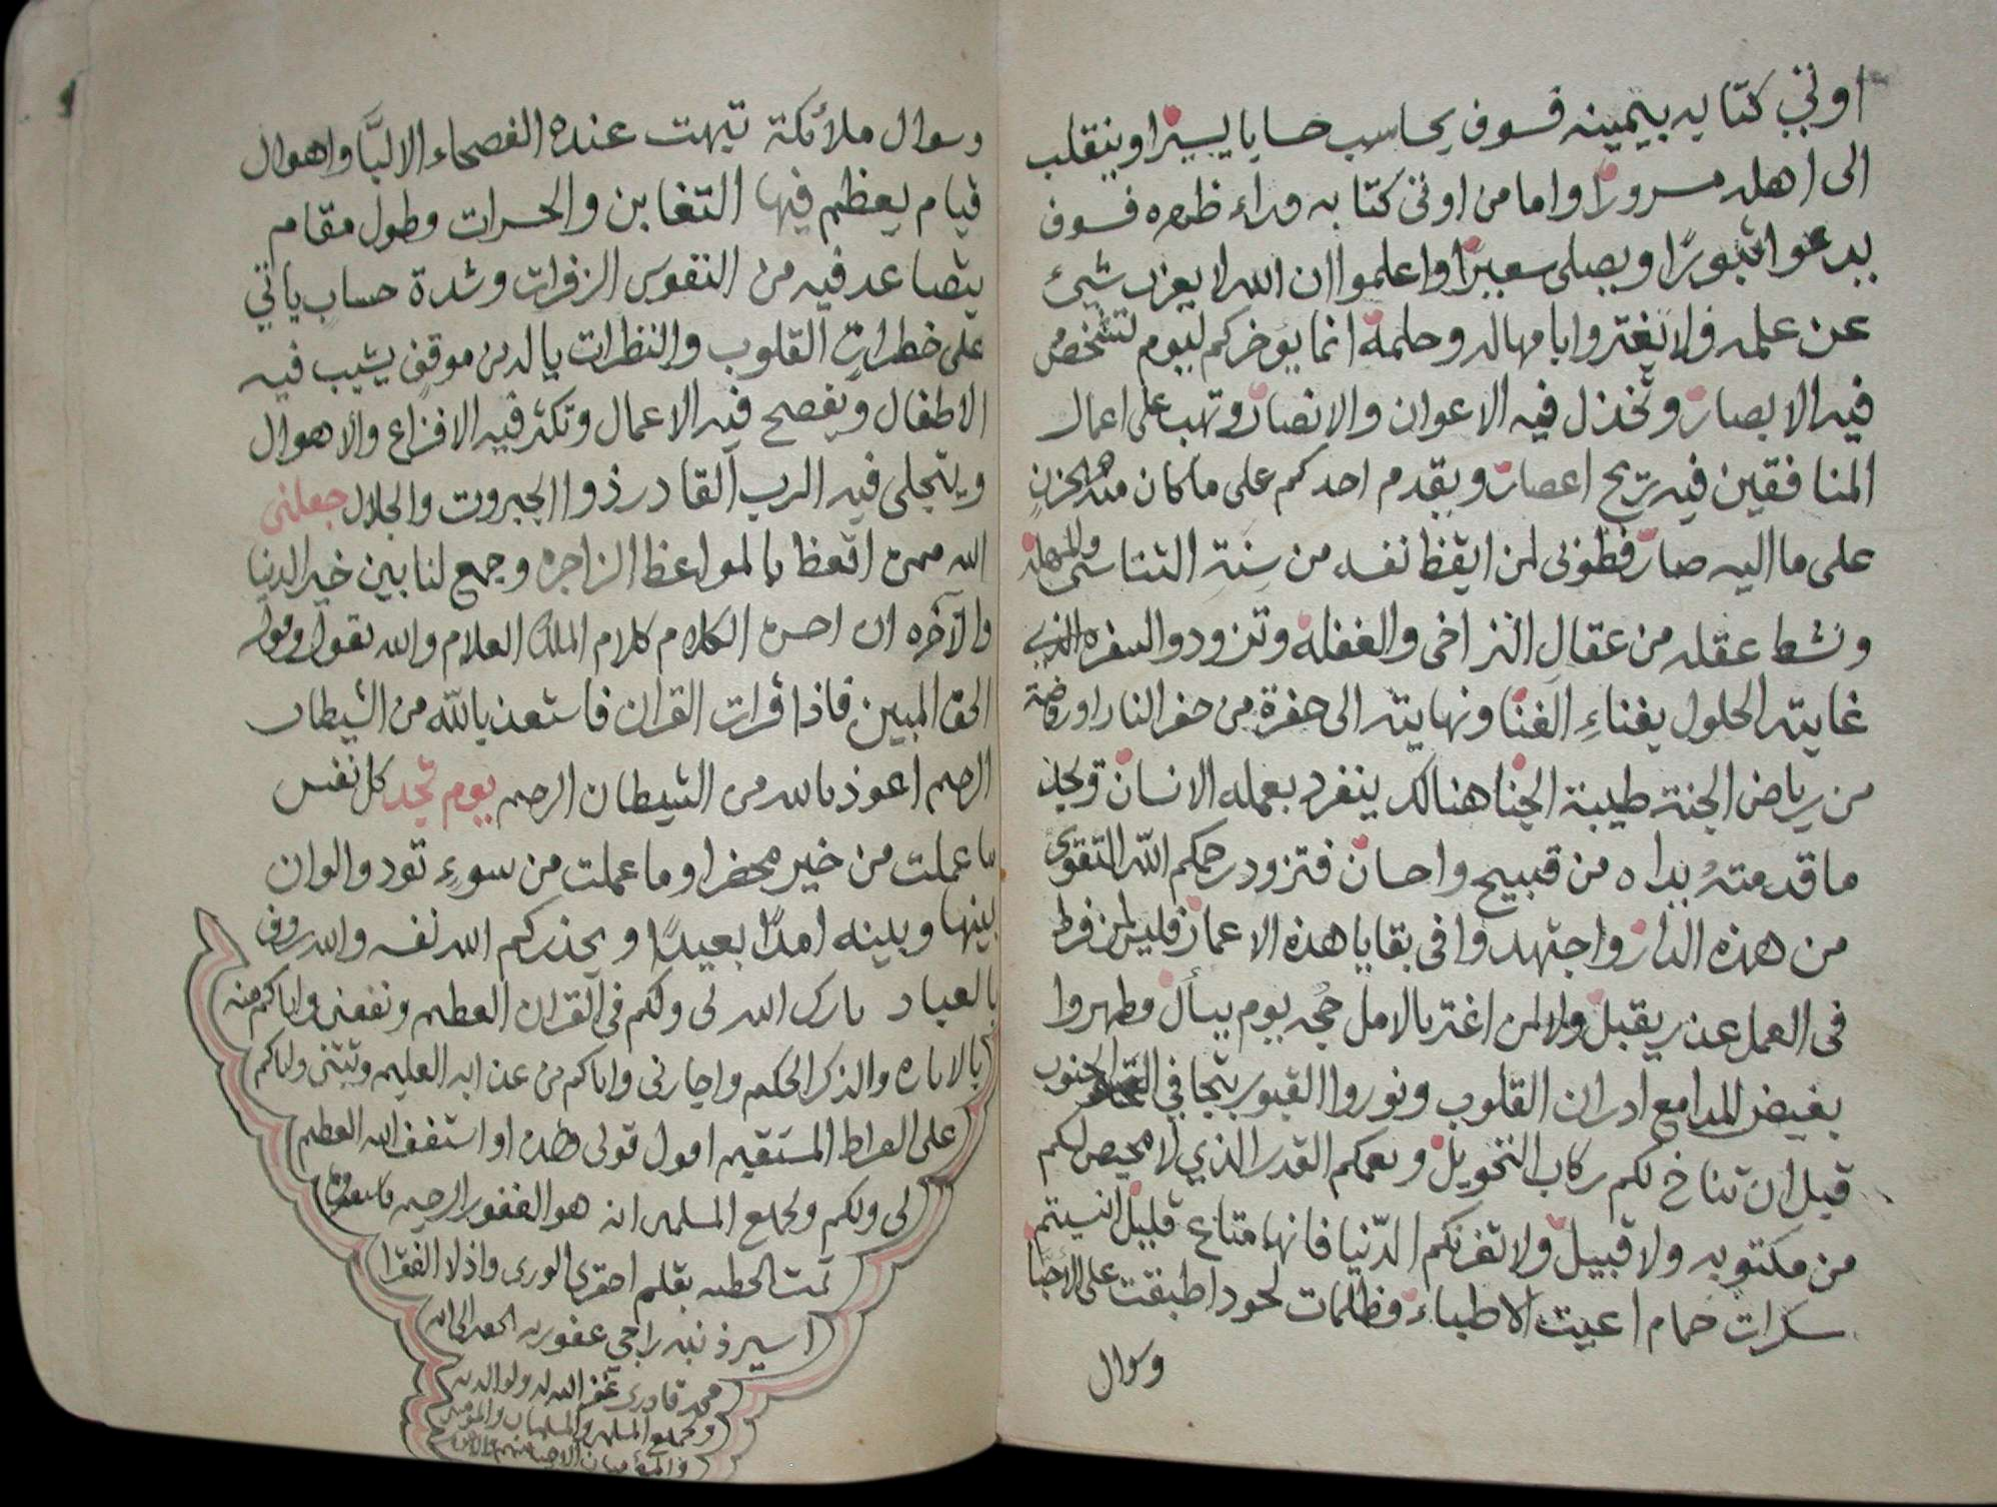 اوتي كتابه بيمينه فسوف يحاسب حسابا يسيرا وينقلب
الى اهله مسرورا واما من اوتى كتابه وراء ظهره فسوف
يدعوا ثبورًا ويصلى سعيرًا واعلموا ان الله لا يعزب شيئ
عن علمه ولا تغتروا بامهاله وحلمه انما يوخركم ليوم تشخص
فيه الابصار وتخذل فيه الاعوان والانصار وتهب على اعمال
المنافقين فيه ريح اعصار ويقدم احدكم على ما كان منه
على ما اليه صار فطوبى لمن ايقظ نفسه من سِنَةِ التناسى
ونشط عقله من عقالِ التراخى والغفلة وتزودوا لسفره الذي
غايته الحلول بفناءِ الفنا ونهايته الى حفرة من حفر النار او روضة
من رياض الجنة طيبة الجنا هنالك ينفرد بعمله الانسان ويجد
ما قدمتهُ يداه من قبيح واحسان فتزود رحمكم الله التقوى
من هذه الدار واجتهدوا فى بقايا هذه الاعمار فليس لمن فرط
فى العمل عذر يقبل ولا لمن اغتر بالامل حجه يوم يسأل وطهروا
بفيض المدامع ادران القلوب ونوروا القبور بتجافي الجنوب
قبل ان تناخ لكم ركاب التحويل ويعمكم القدر الذي لا محيص لكم
من مكتوبه ولا قبيل ولا تغرنكم الدّنيا فانها متاع قليل انسيتم
سكرات حمام اعيت الاطباء وظلمات لحود اطبقت على الأحبّا
وسوال
وسوال ملائكة تبهت عنده الفصحاء الالبَّا واهوال
قيام يعظم فيها التغابن والحسرات وطول مقام
يتصاعد فيه من النفوس الزفرات وشدة حساب ياتي
على خطرات القلوب والنظرات يا له من موقف يشيب فيه
الاطفال ويفصح فيه الاعمال وتكثر فيه الافزاع والاهوال
ويتجلى فيه الرب القادر ذوا الجبروت والجلال جعلنى
الله ممن اتعظ بالمواعظ الزاجره وجمع لنا بين خير الدنيا
والآخره ان احسن الكلام كلام الملك العلام والله يقول وقوله
الحق المبين فاذا قرات القران فاستعذ بالله من الشيطان
الرجيم اعوذ بالله من الشيطان الرجيم يوم تجد كل نفس
ما عملت من خير محضرا وما عملت من سوءٍ تود والوان
بينها وبينه امدًا بعيدًا ويحذركم الله نفسه والله روف
بالعباد بارك الله لى ولكم فى القران العظيم ونفعنى واياكم منه
بالاياه والذكر الحكيم واجارنى واياكم من عذابه العليم وثبتنى واياكم
على الصراط المستقيم اقول قولى هذا واستغفر الله العظيم
لى ولكم ولجميع المسلمين انه هو الغفور الرحيم
تمت الخطبه بقلم احقر الورى واذل الفقرا
اسير ذنبه راجي عفو ربه
محمد قادرى غفر الله له ولوالديه
ولجميع المسلمين والمسلمات والمومنين